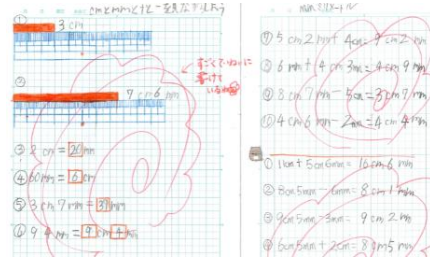 cmとmmとテープを見ながらはかろう
①
3 cm
②
7 cm 6 mm
すごくていねいに
書けて
いるね
③ 2 cm = 20 mm
④ 60mm = 6 cm
⑤ 3 cm 7 mm = 37 mm
⑥ 94 mm = 9 cm 4 mm
mm ミリメートル
⑦ 5 cm 2 mm + 4 cm = 9 cm 2 mm
⑧ 6 mm + 4 cm 3 mm = 4 cm 9 mm
⑨ 8 cm 7 mm - 5 cm = 3 cm 7 mm
⑩ 4 cm 6 mm - 2 mm = 4 cm 4 mm
① 11cm + 5cm 6mm = 16 cm 6 mm
② 8cm 5mm - 6mm = 8 cm 1 mm
③ 9cm 5mm - 3mm = 9 cm 2 mm
④ 6cm 5mm + 2cm = 8 cm 5 mm